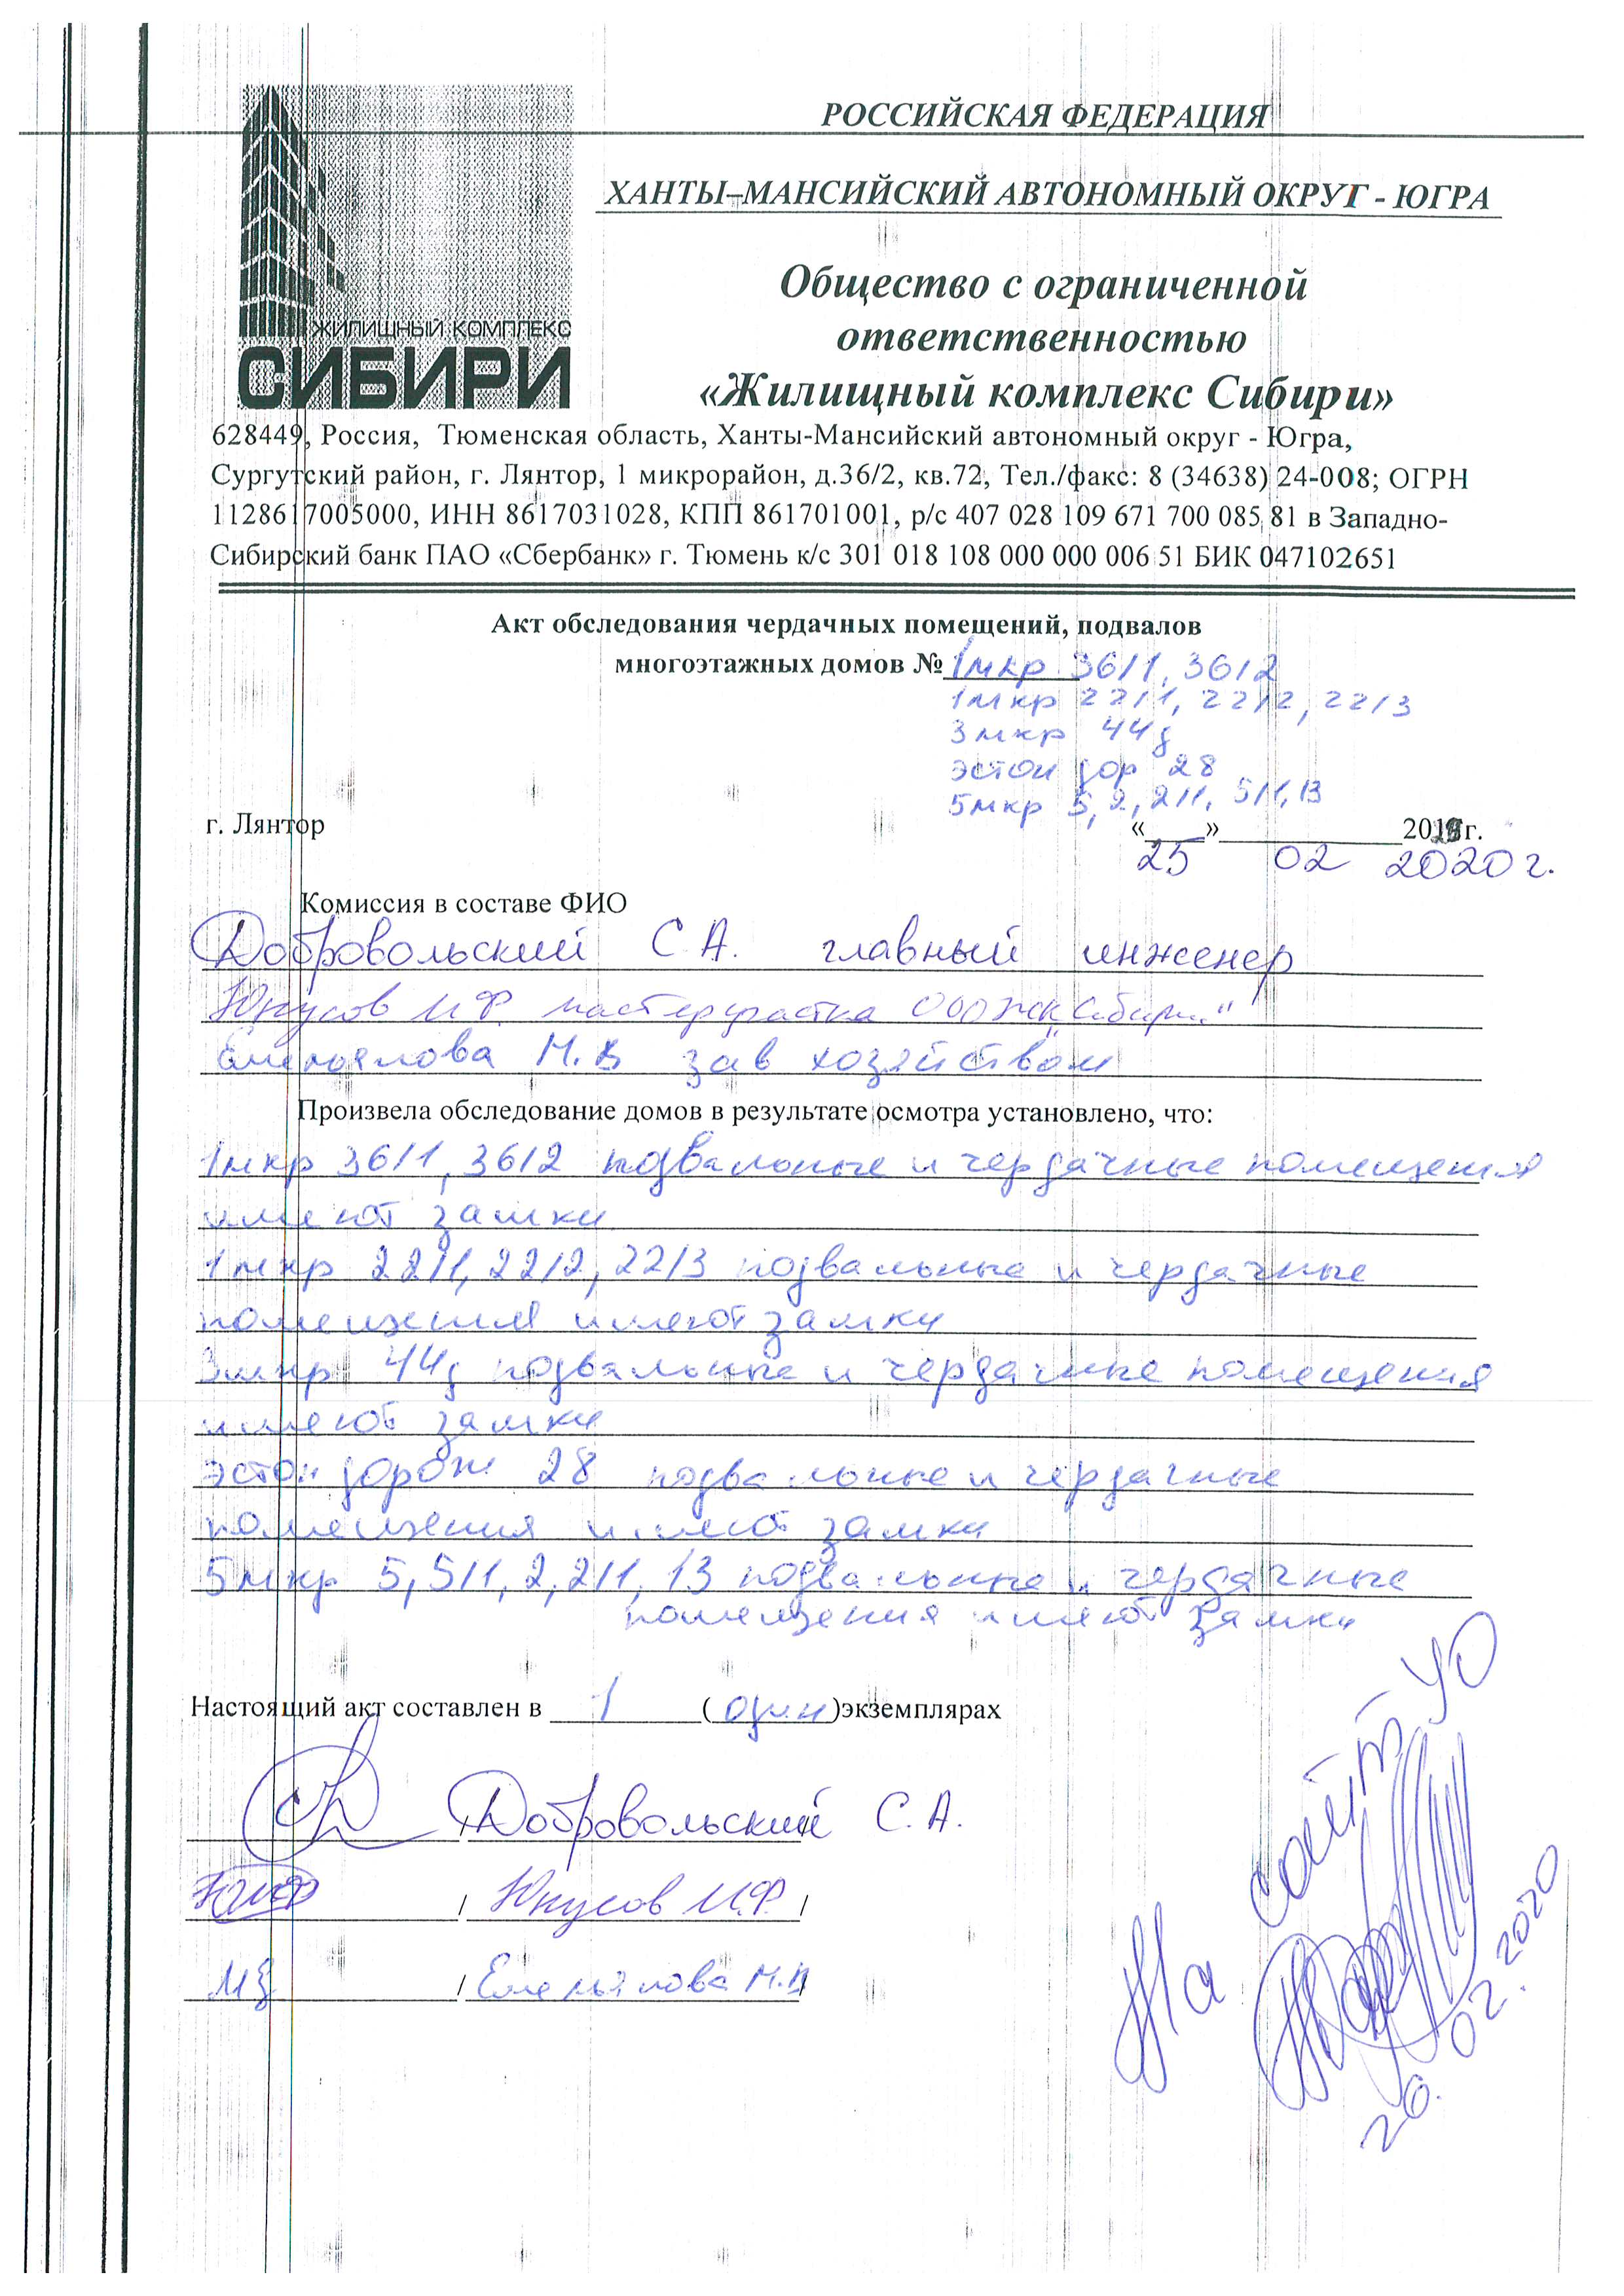 РОССИЙСКАЯ ФЕДЕРАЦИЯ
ХАНТЫ–МАНСИЙСКИЙ АВТОНОМНЫЙ ОКРУГ - ЮГРА
ЖИЛИЩНЫЙ КОМПЛЕКС
СИБИРИ
Общество с ограниченной
ответственностью
«Жилищный комплекс Сибири»
628449, Россия, Тюменская область, Ханты-Мансийский автономный округ - Югра,
Сургутский район, г. Лянтор, 1 микрорайон, д.36/2, кв.72, Тел./факс: 8 (34638) 24-008; ОГРН
1128617005000, ИНН 8617031028, КПП 861701001, р/с 407 028 109 671 700 085 81 в Западно-
Сибирский банк ПАО «Сбербанк» г. Тюмень к/с 301 018 108 000 000 006 51 БИК 047102651
Акт обследования чердачных помещений, подвалов
многоэтажных домов № 1мкр 36/1, 36/2
1мкр 22/1, 22/2, 22/3
3мкр 44д
эстон дор 28
5мкр 5, 2, 2/1, 5/1, 13
г. Лянтор «___»____________ 201 г.
25 02 2020 г.
Комиссия в составе ФИО
Добровольский С.А. главный инженер
Юнусов И.Ф. мастер участка ООО ЖК "Сибири"
Емельянова М.В зав хозяйством
Произвела обследование домов в результате осмотра установлено, что:
1мкр 36/1, 36/2 подвальные и чердачные помещения
имеют замки
1мкр 22/1, 22/2, 22/3 подвальные и чердачные
помещения имеют замки
3мкр 44д подвальные и чердачные помещения
имеют замки
эстон дорож 28 подвальные и чердачные
помещения имеют замки
5мкр 5, 5/1, 2, 2/1, 13 подвальные и чердачные
помещения имеют замки
Настоящий акт составлен в 1 (один)экземплярах
/ Добровольский С.А.
/ Юнусов И.Ф. /
/ Емельянова М.В /
На сайт УО
26.02.2020